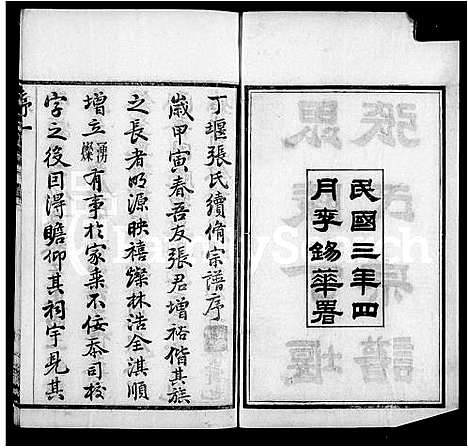 民國三年四
月李錫華署
丁堰張氏續脩宗譜序
歲甲寅春吾友張君增裕偕其族
之長者明源映禧燦林浩全淇順
增立湧燦有事於家乘不佞忝司校
字之後因得瞻仰其祠宇見其
序一
FamilySearch